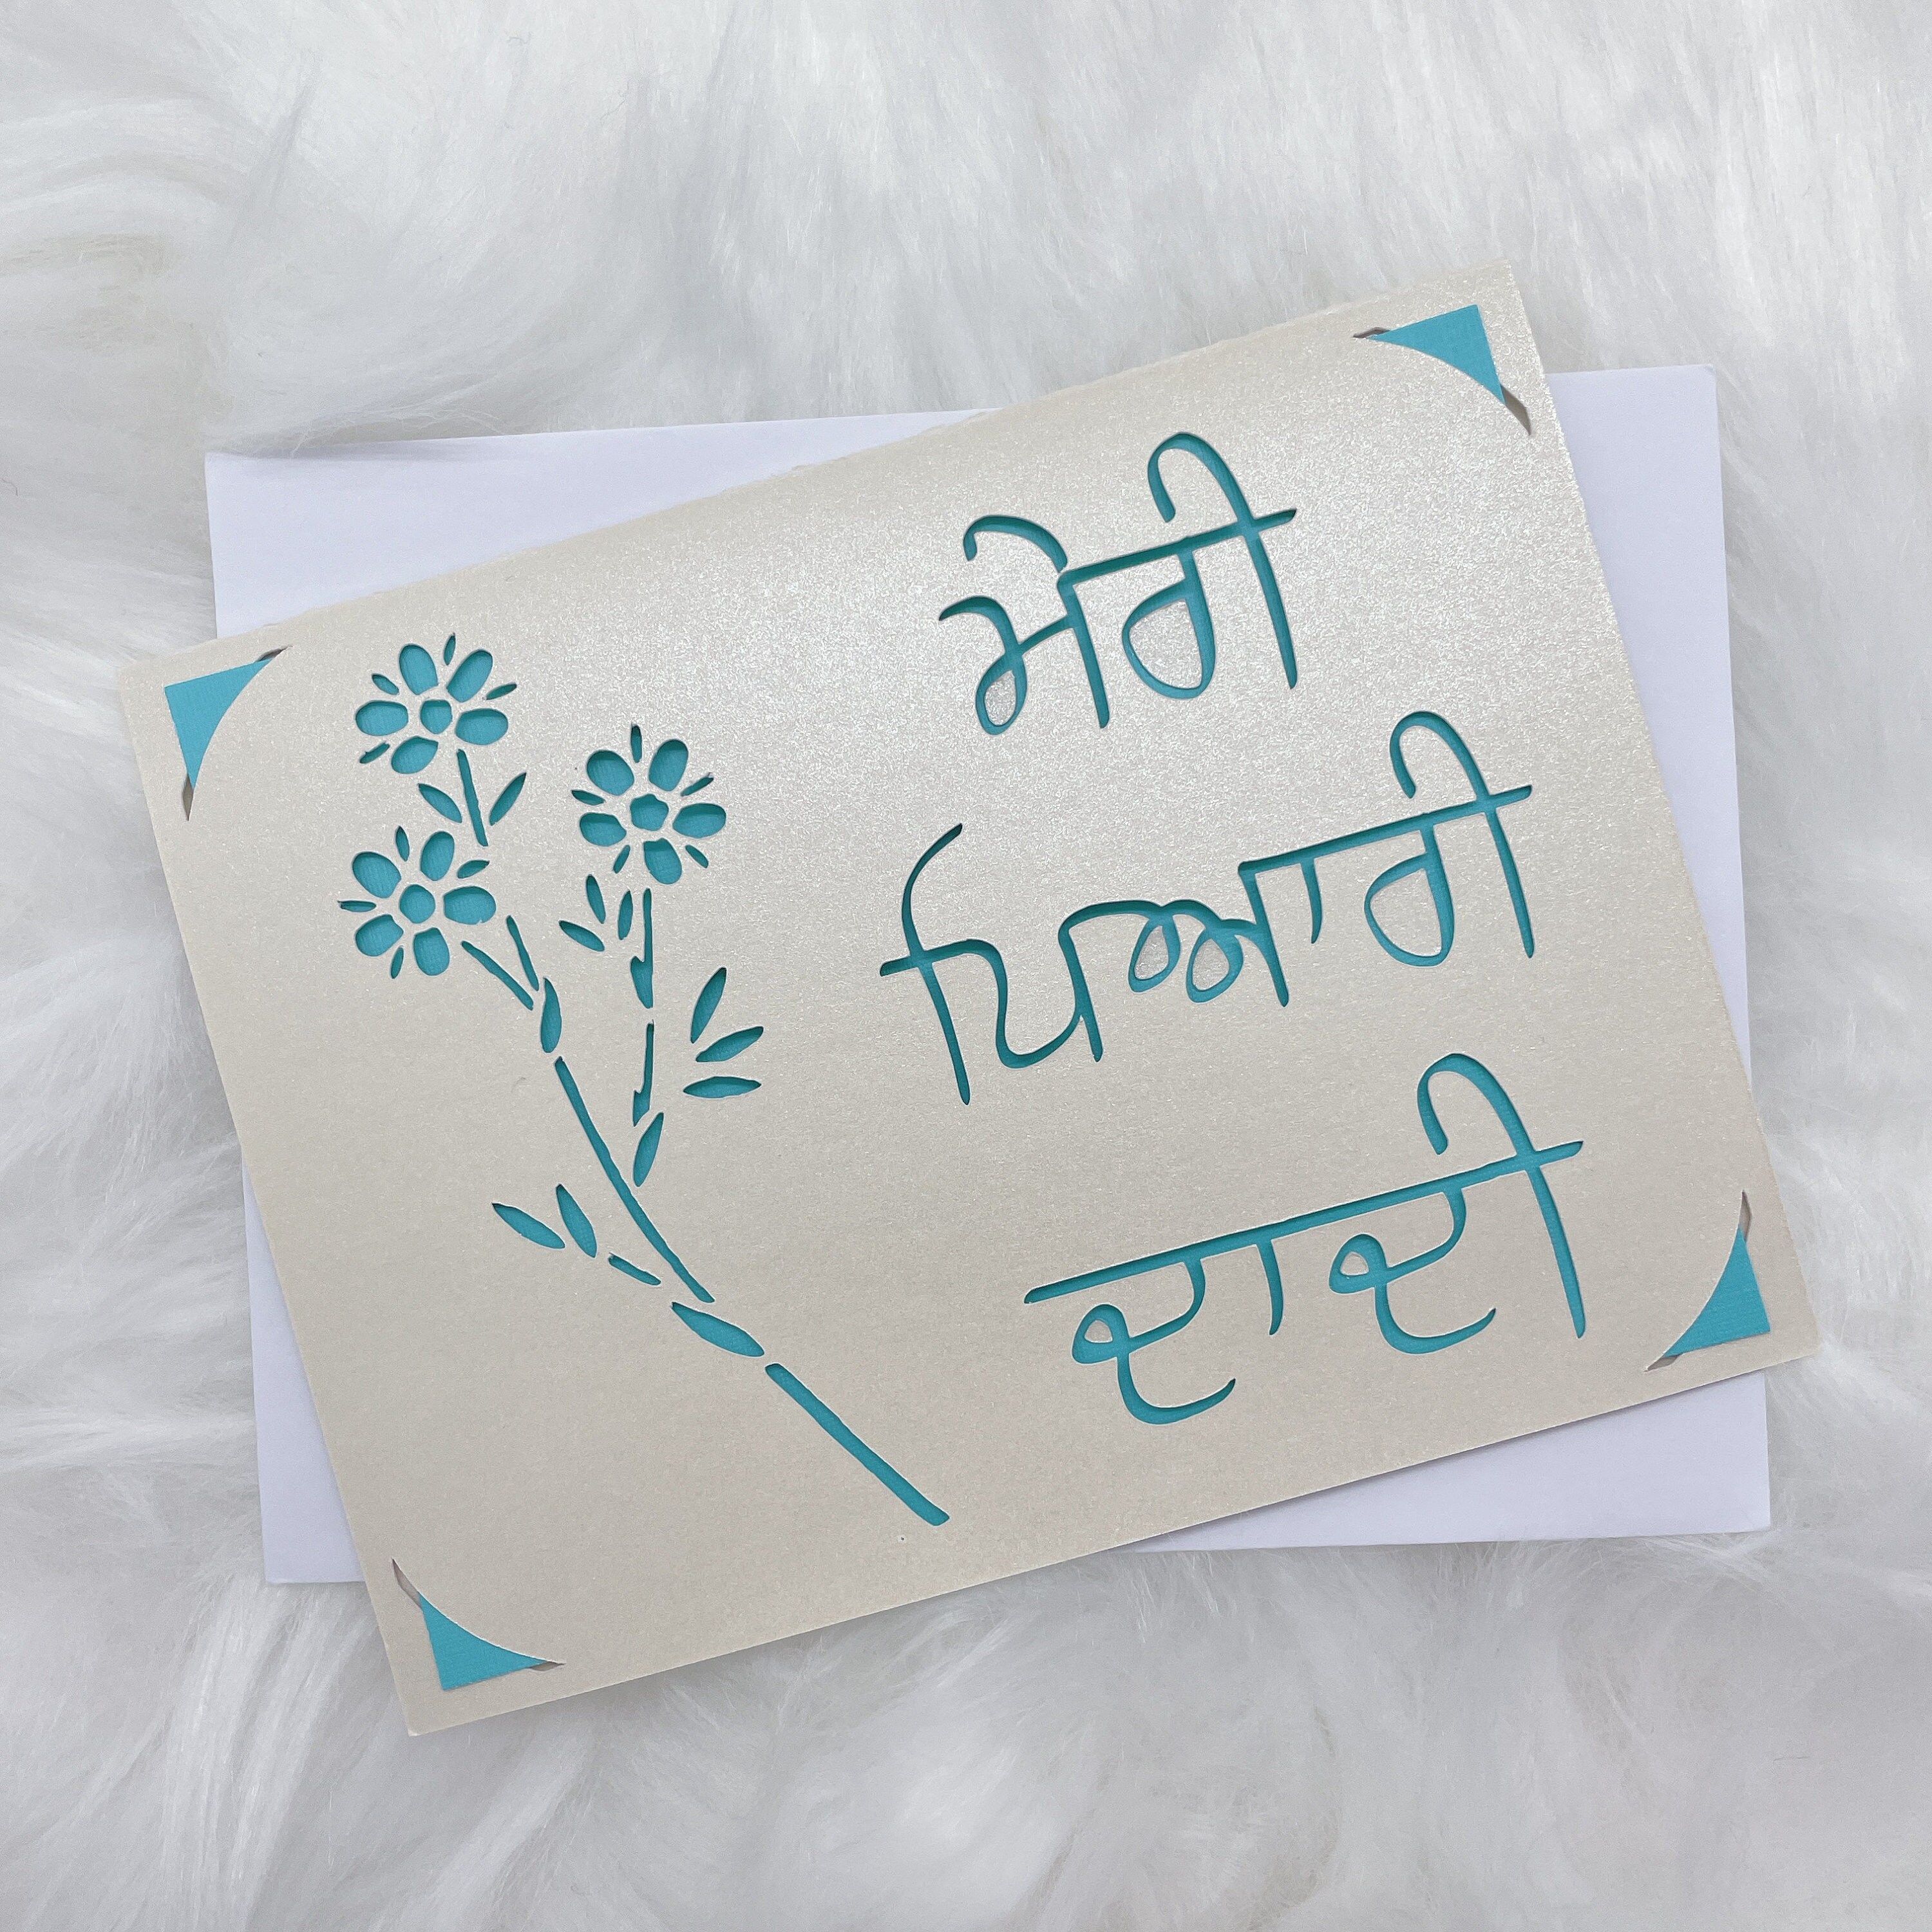 ਮੇਰੀ
ਪਿਆਰੀ
ਦਾਦੀ